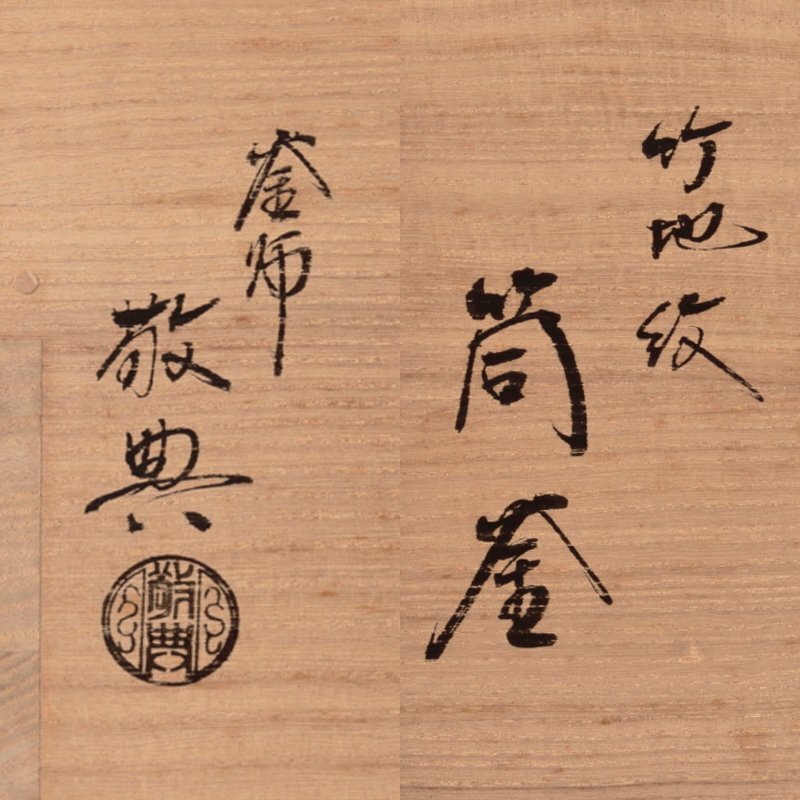 竹地紋
筒釜
釜師
敬典
敬典